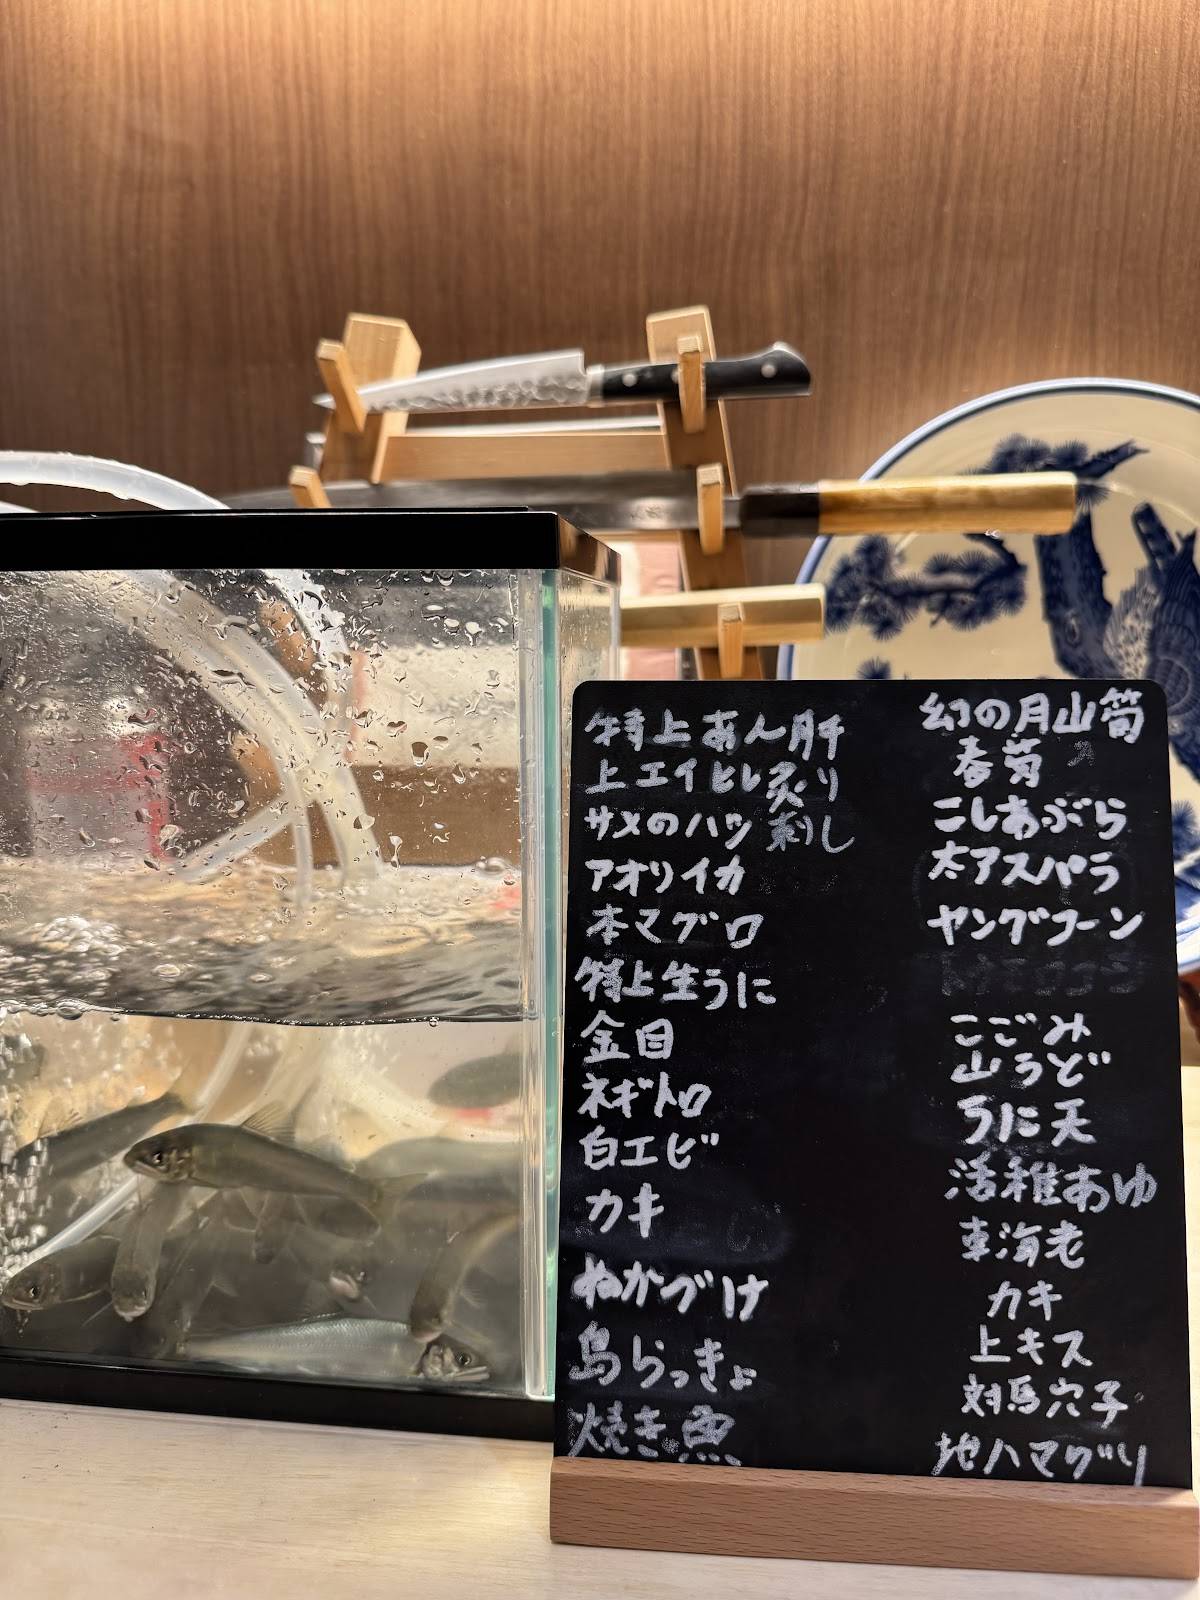 特上あん肝
上エイヒレ炙り
サメのハツ刺し
アオリイカ
本マグロ
特上生うに
金目
ネギトロ
白エビ
カキ
ぬかづけ
島らっきょ
焼き魚
幻の月山筍
春菊
こしあぶら
太アスパラ
ヤングコーン
こごみ
山うど
うに天
活稚あゆ
車海老
カキ
上キス
対馬穴子
地ハマグリ